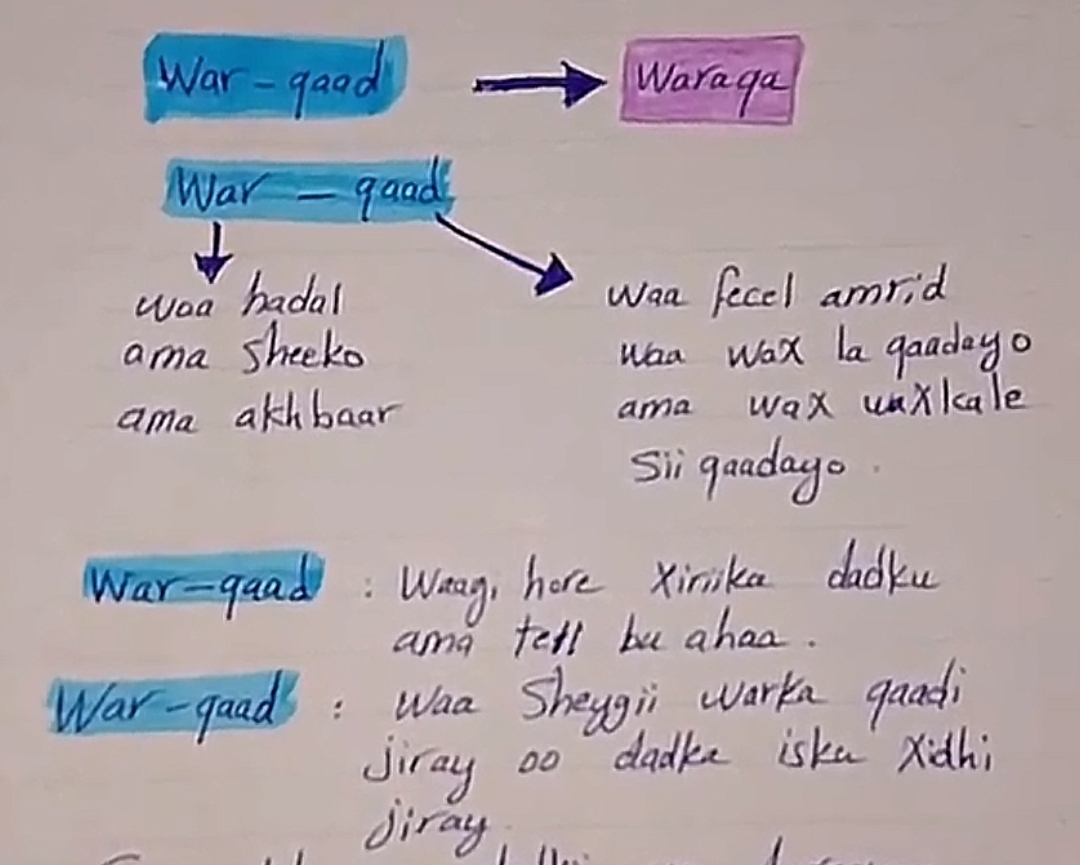 War - qaad → Waraqa
War - qaad
waa hadal
ama sheeko
ama akhbaar
waa fecel amrid
waa wax la qaadayo
ama wax waxkale
Sii qaadayo.
War-qaad : Waagi hore xiriika dadku
ama tell bu ahaa.
War-qaad : waa Sheygii warka qaadi
jiray oo dadka isku xidhi
jiray.